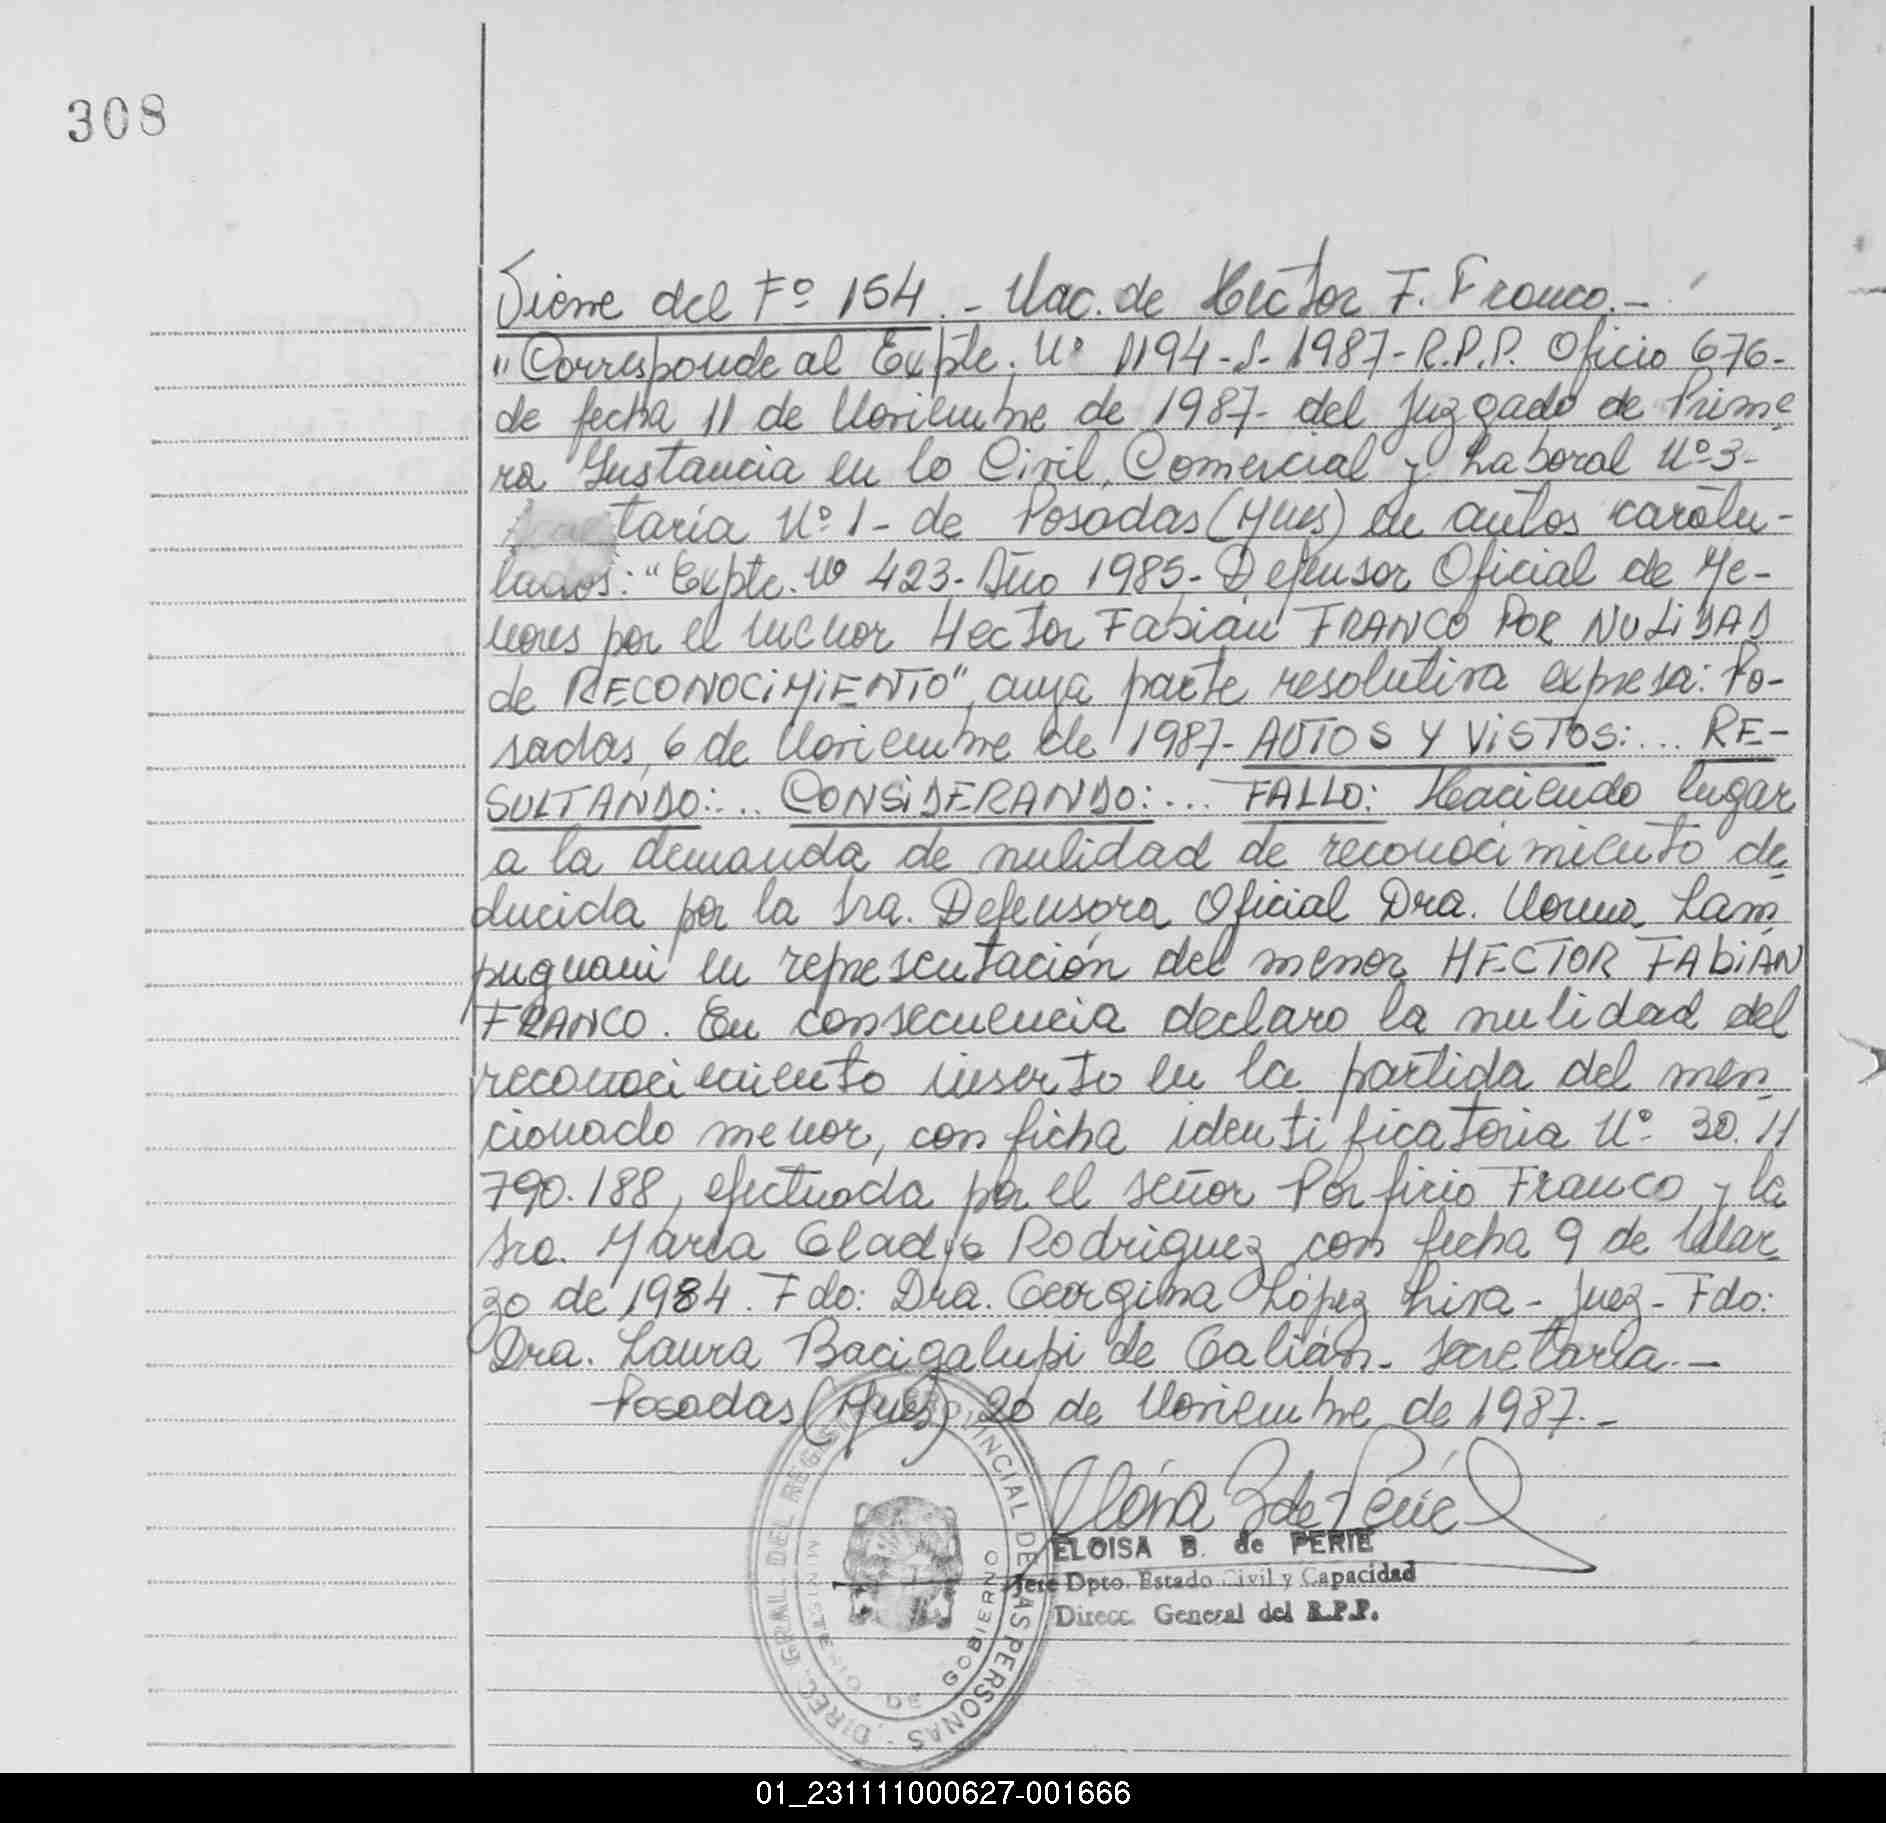 308
Viene del Fº 154. - Nac. de Hector F. Franco.-
"Corresponde al Expte. Nº 1194-S-1987-R.P.P. Oficio 676-
de fecha 11 de Noviembre de 1987- del Juzgado de Prime-
ra Instancia en lo Civil, Comercial y Laboral Nº 3-
taría Nº 1- de Posadas (Mnes) en autos carátu-
lados: "Expte. Nº 423- Año 1985- Defensor Oficial de Me-
nores por el menor Hector Fabián FRANCO POR NULIDAD
de RECONOCIMIENTO", cuya parte resolutiva expresa: Po-
sadas, 6 de Noviembre de 1987- AUTOS Y VISTOS:... RE-
SULTANDO:... CONSIDERANDO:... FALLO: Haciendo lugar
a la demanda de nulidad de reconocimiento de-
ducida por la Sra. Defensora Oficial Dra. Norma Lam-
pugnani en representación del menor HECTOR FABIÁN
FRANCO. En consecuencia declaro la nulidad del
reconocimiento inserto en la partida del men-
cionado menor, con ficha identificatoria Nº 30.11
790.188, efectuada por el señor Porfirio Franco y la
Sra. María Gladys Rodriguez con fecha 9 de Mar-
zo de 1984. Fdo: Dra. Georgina López Liva - Juez- Fdo:
Dra. Laura Bacigalupi de Galián- Secretaria.-
Posadas (Mnes), 20 de Noviembre de 1987.-
DIREC. GRAL. DEL REGISTRO PROVINCIAL DE LAS PERSONAS
MINISTERIO DE GOBIERNO
ELOISA B. de PERIE
Jefe Dpto. Estado Civil y Capacidad
Direcc. General del R.P.P.
01_231111000627-001666